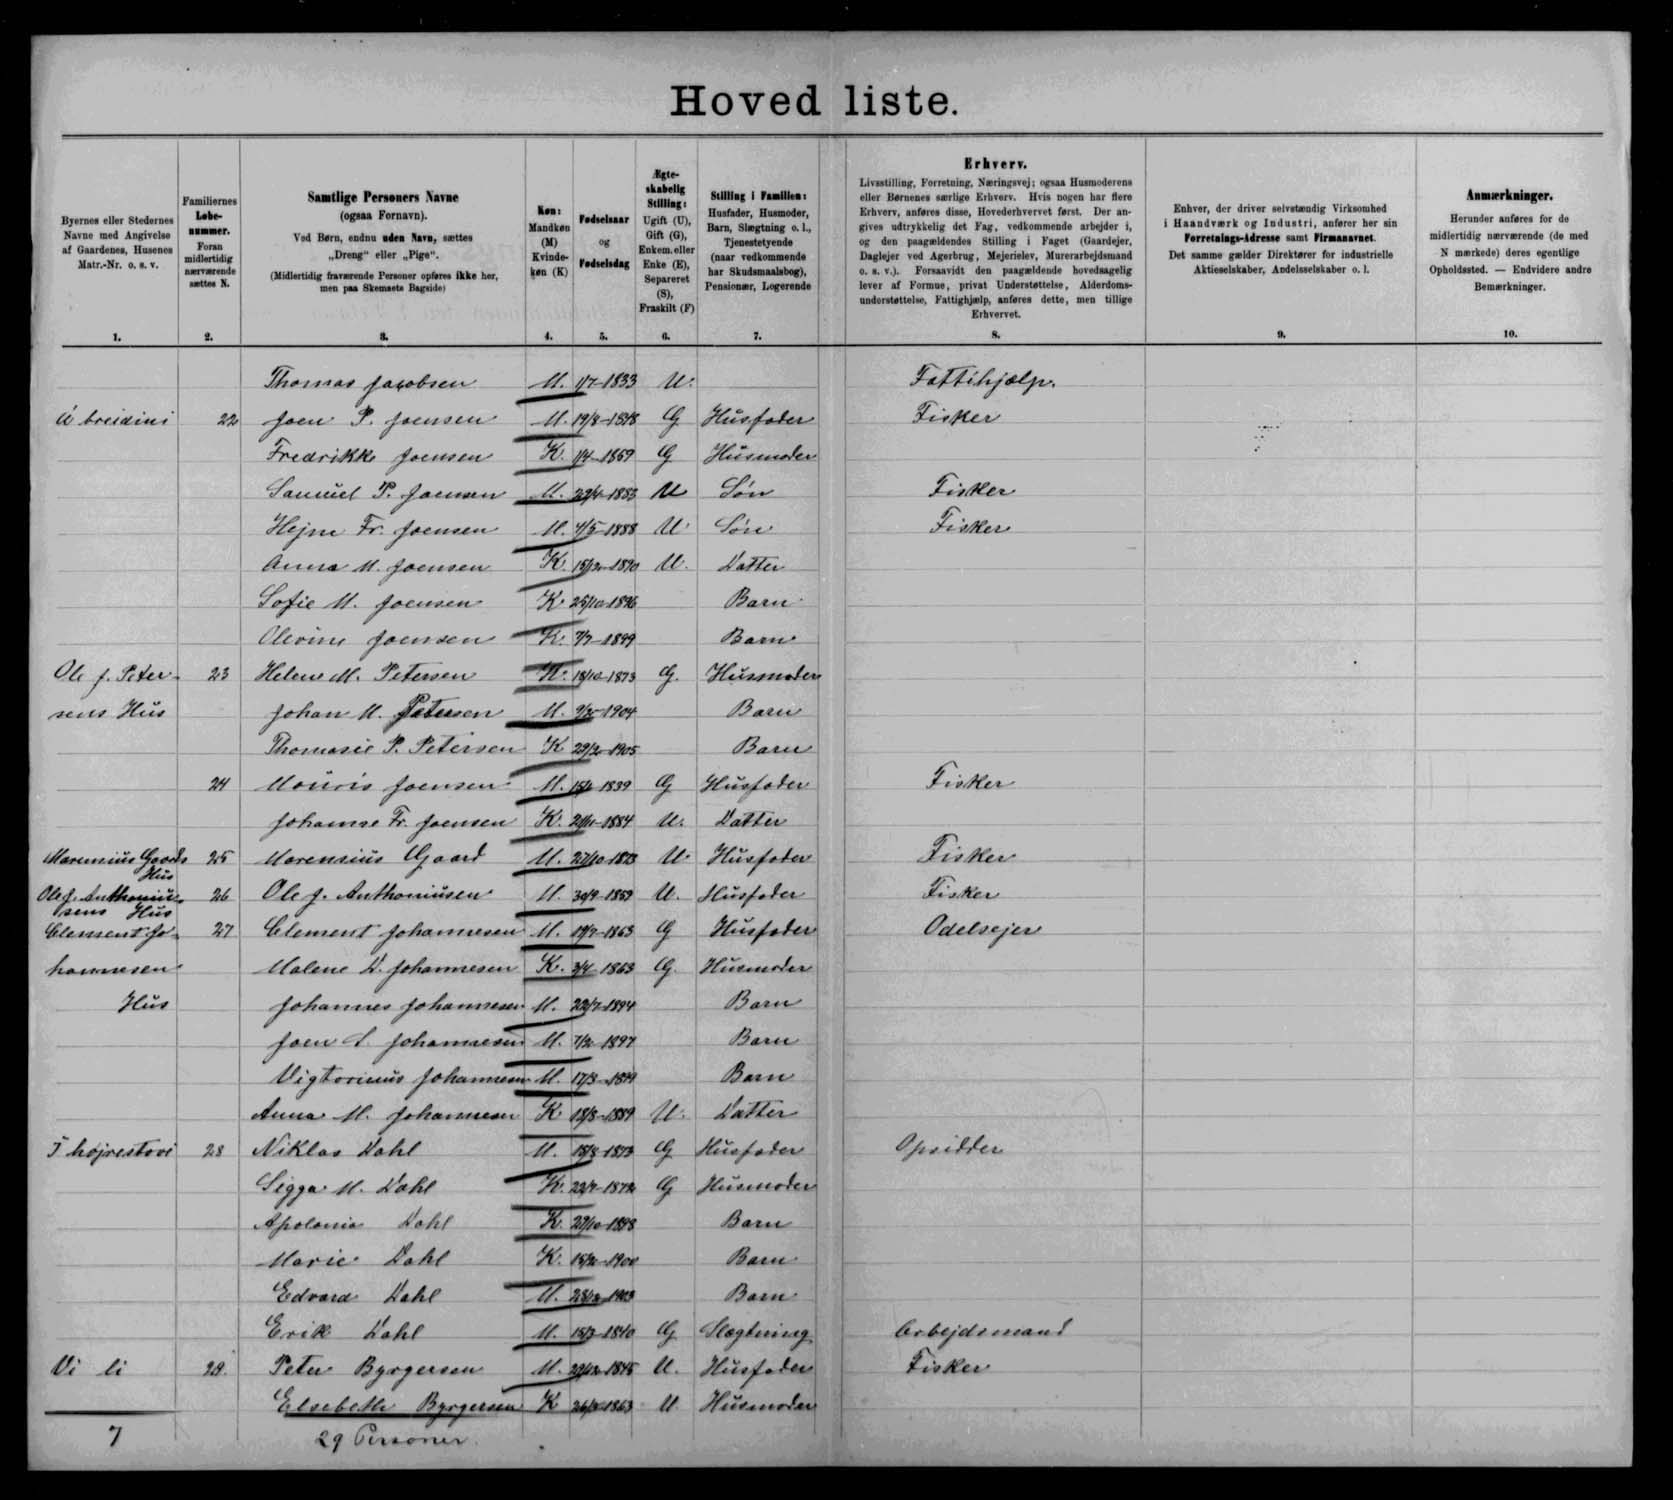 Hoved liste.
Byernes eller Stedernes
Navne med Angivelse
af Gaardenes, Husenes
Matr.-Nr. o. s. v.
1.
Familiernes
Løbe-
nummer.
Foran
midlertidig
nærværende
sættes N.
2.
Samtlige Personers Navne
(ogsaa Fornavn).
Ved Børn, endnu uden Navn, sættes
„Dreng“ eller „Pige“.
(Midlertidig fraværende Personer opføres ikke her,
men paa Skemaets Bagside)
3.
Køn:
Mandkøn
(M)
Kvinde-
køn (K)
4.
Fødselsaar
og
Fødselsdag
5.
Ægte-
skabelig
Stilling:
Ugift (U),
Gift (G),
Enkem. eller
Enke (E),
Separeret
(S),
Fraskilt (F)
6.
Stilling i Familien:
Husfader, Husmoder,
Barn, Slægtning o. l.,
Tjenestetyende
(naar vedkommende
har Skudsmaalsbog),
Pensionær, Logerende
7.
Erhverv.
Livsstilling, Forretning, Næringsvej; ogsaa Husmoderens
eller Børnenes særlige Erhverv. Hvis nogen har flere
Erhverv, anføres disse, Hovederhvervet først. Der an-
gives udtrykkelig det Fag, vedkommende arbejder i,
og den paagældendes Stilling i Faget (Gaardejer,
Daglejer ved Agerbrug, Mejerielev, Murerarbejdsmand
o. s. v.). Forsaavidt den paagældende hovedsagelig
lever af Formue, privat Understøttelse, Alderdoms-
understøttelse, Fattighjælp, anføres dette, men tillige
Erhvervet.
8.
Enhver, der driver selvstændig Virksomhed
i Haandværk og Industri, anfører her sin
Forretnings-Adresse samt Firmanavnet.
Det samme gælder Direktører for industrielle
Aktieselskaber, Andelsselskaber o. l.
9.
Anmærkninger.
Herunder anføres for de
midlertidig nærværende (de med
N mærkede) deres egentlige
Opholdssted. — Endvidere andre
Bemærkninger.
10.
Thomas Jacobsen M. 1/7-1833 U. Fattihjælp.
Á breidini 22 Joen P. Joensen M. 19/8-1848 G Husfader Fisker
Fredrikke Joensen K. 1/4-1859 G Husmoder
Samuel P. Joensen M. 1883 U Søn Fisker
Hejne Fr. Joensen M. 4/5-1888 U Søn Fisker
Anna M. Joensen K. 1890 U. Datter
Sofie M. Joensen K. 25/10-1896 Barn
Olevine Joensen K. 7/7-1899 Barn
Ole J. Peter- 23 Helene M. Petersen K. 18/10-1873 G. Husmoder
sens Hus Johan M. Petersen M. 1904 Barn
Thomasie P. Petersen K 1905 Barn
24 Mouris Joensen M. 1839 G Husfader Fisker
Johanne Fr. Joensen K. 1884 U. Datter
Marensius Gaards 25 Marensius Gaard M. 27/10-1873 U. Husfader Fisker
Hus
Ole J. Anthoniu- 26 Ole J. Anthoniusen M. 30/9-1859 U. Husfader Fisker
sens Hus
Clement Jo- 27 Clement Johannesen M. 19/7-1863 G Husfader Odelsejer
hannesen Malene D. Johannesen K. 3/4 1863 G. Husmoder
Hus Johannes Johannesen M. 22/7-1894 Barn
Joen Johannesen M. 7/2-1897 Barn
Vigtorinus Johannesen M. 17/3-1899 Barn
Anna M. Johannesen K 18/8-1889 U. Datter
Í højrestovi 28 Niklas Dahl M. 18/8-1873 G Husfader Opsidder
Sigga M. Dahl K. 22/7-1872 G Husmoder
Apolonia Dahl K. 1898 Barn
Marie Dahl K. 15/2-1900 Barn
Edvard Dahl M. 1903 Barn
Erik Dahl M. 15/3-1840 G Slægtning Arbejdsmand
Vi li 29. Peter Byrgersen M. 1845 U. Husfader Fisker
Elsebeth Byrgersen K 1863 U Husmoder
7 29 Personer.